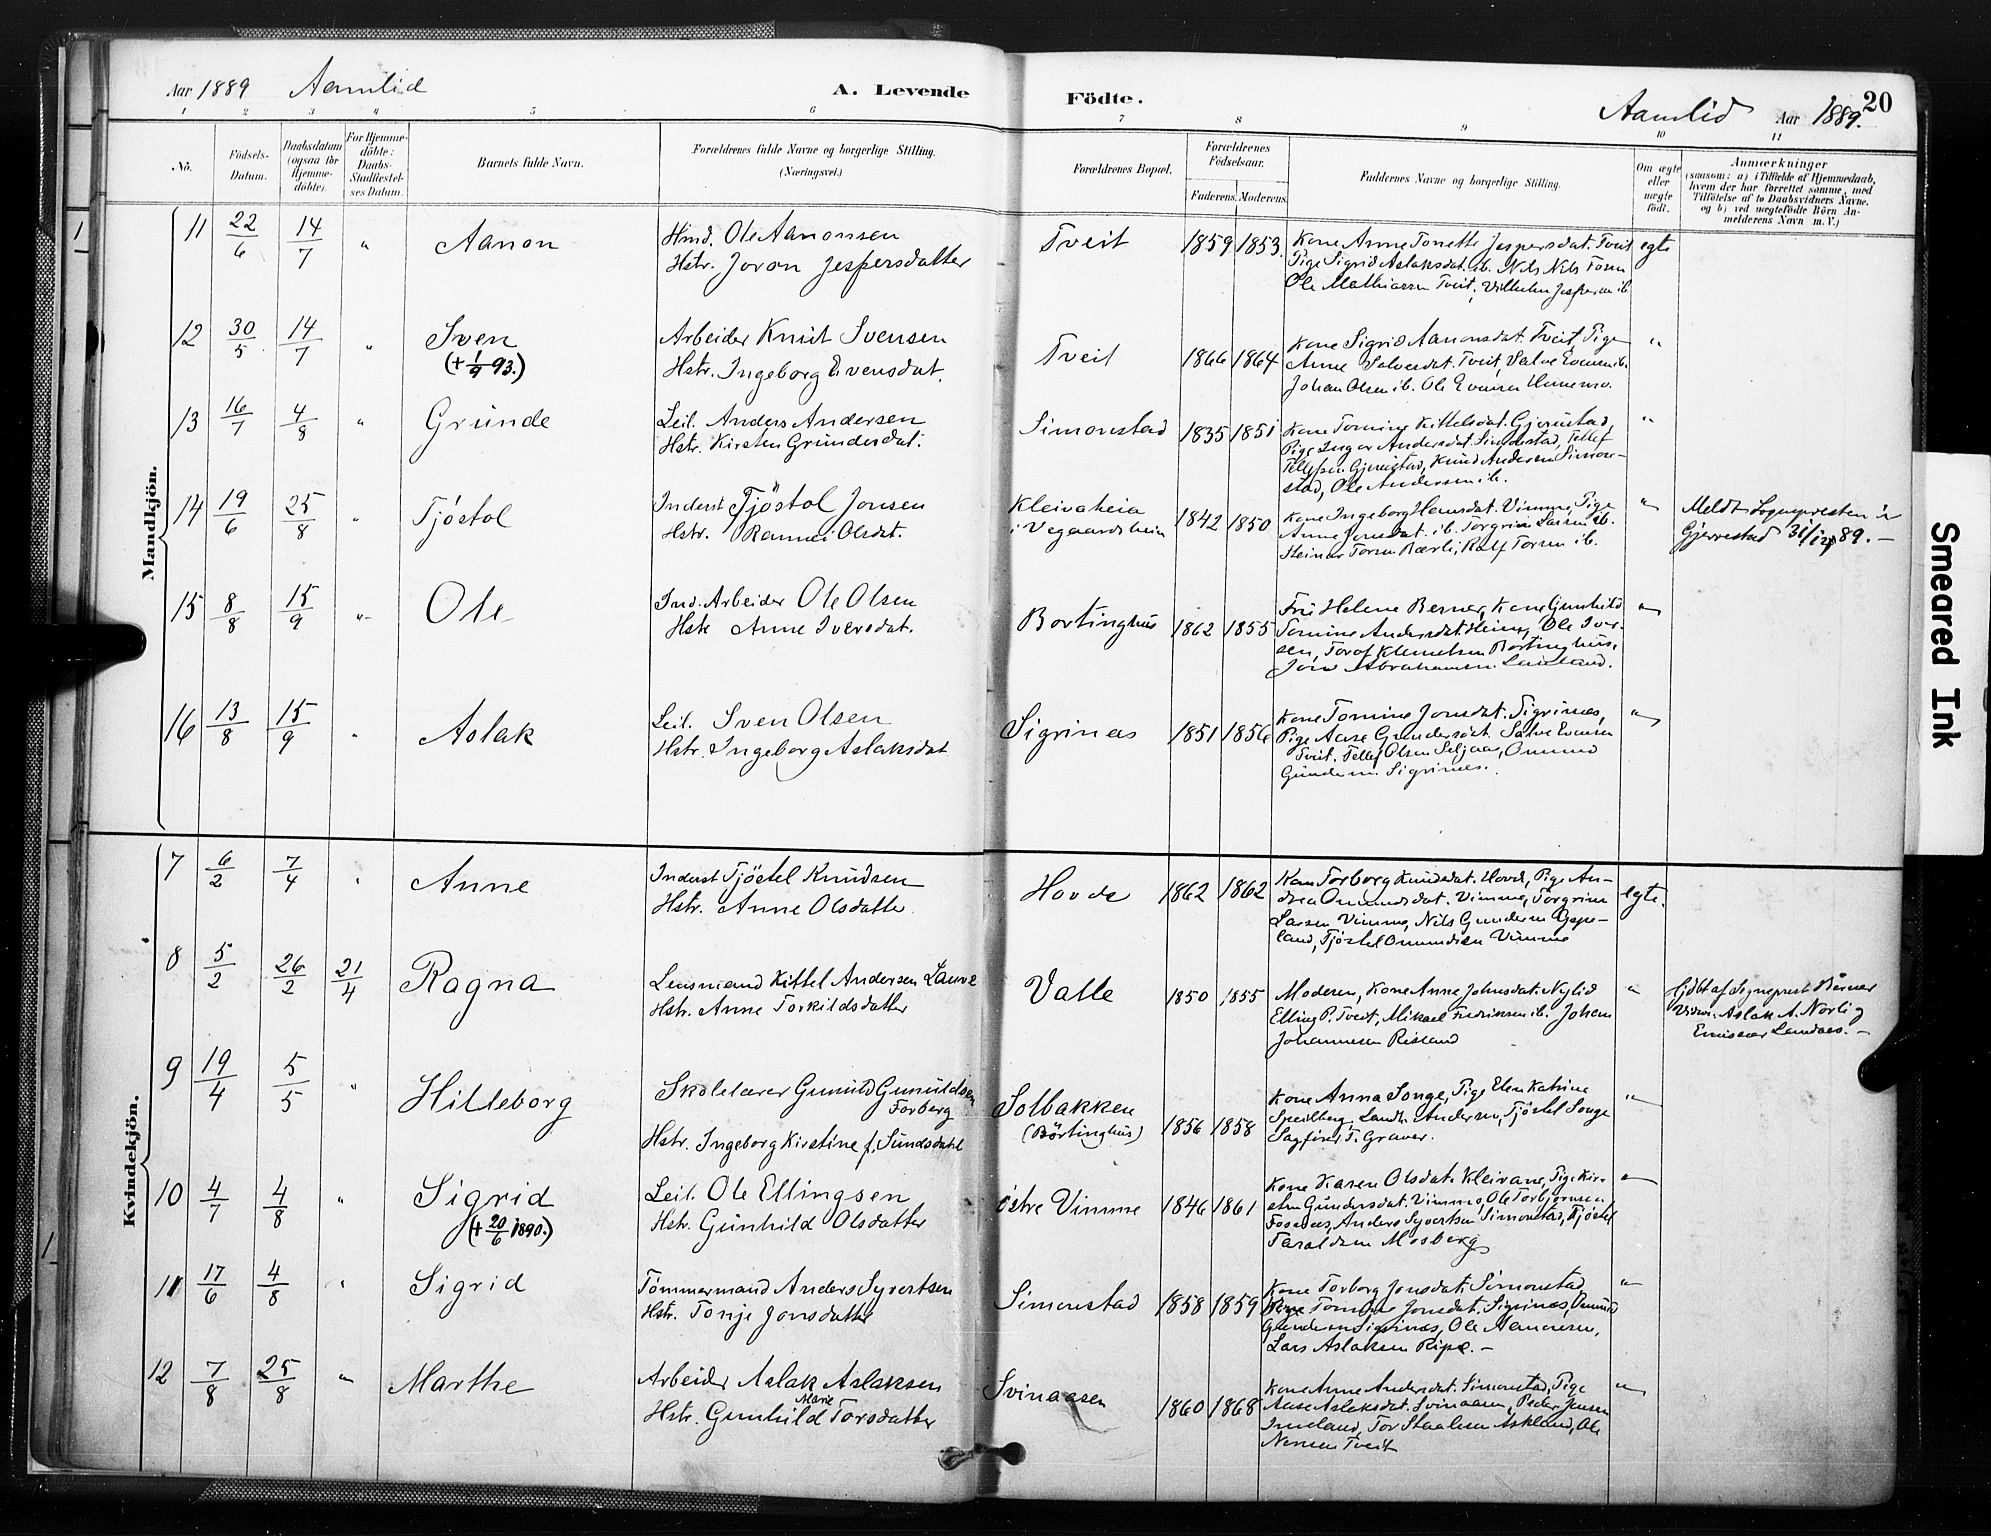 Aar 1889 Aamlid A. Levende Födte. Aamlid Aar 1889. 20
1 2 3 4 5 6 7 8 9 10 11
No.
Födsels-
Datum.
Daabsdatum
(ogsaa for
Hjemme-
döbte).
For Hjemme-
döbte:
Daabs-
Stadfæstel-
ses Datum.
Barnets fulde Navn.
Forældrenes fulde Navne og borgerlige Stilling.
(Næringsvei.)
Forældrenes Bopæl.
Forældrenes
Födselsaar.
Faderens. Moderens.
Faddernes Navne og borgerlige Stilling.
Om ægte
eller
uægte
födt.
Anmærkninger
(saasom: a) i Tilfælde af Hjemmedaab,
hvem der har forrettet samme, med
Tilföielse af to Daabsvidners Navne.
og b) ved uægtefödte Börn An-
melderens Navn m.V.)
Mandkjön.
11 22/6 14/7 " Aanon
Hmd. Ole Aanonsen
Hstr. Joron Jespersdatter
Tveit 1859 1853.
Kone Anne Tonette Jespersdat. Tveit
Pige Sigrid Aslaksdat. ib. Nils Nils
Ole Mathiassen Tveit, Vilhelm Jespersen ib.
egte
12 30/5 14/7 " Sven
(+ 1/9 93.)
Arbeider Knut Svensen
Hstr. Ingeborg Evensdat.
Tveit 1866 1864
Kone Sigrid Aanonsdat. Tveit, Pige
Anne Salvesdat. Tveit, Salve Evensen ib.
Johan Olsen ib. Ole Evensen
"
13 16/7 4/8 " Grunde
Leil. Anders Andersen
Hstr. Kirsten Grundesdat.
Simonstad 1835 1851
Kone Tomine Kittelsdat. Gjerustad,
Pige Inger Andersdat. Simonstad, Tellef
Tellefsen Gjerustad, Knud Andersen Simon-
stad, Ole Andersen ib.
"
14 19/6 25/8 " Tjöstol
Inderst Tjöstol Jonsen
Hstr. Rannei Olsdat.
Kleivaheia
i Vegaardsheien
1842 1850
Kone Ingeborg Hansdat. Vimme, Pige
Anne Jonsdat. ib. Torgrim Larsen ib.
Steinar Torsen Bærli, Rolf Torsen ib.
"
Meldt Sognepresten i
Gjerrestad 31/12 89. —
15 8/8 15/9 " Ole
Ind. Arbeider Ole Olsen
Hstr. Anne Iversdat.
Bortinghus 1862 1855
Fru Helene Berner, Kone Gunhild
Tomine Andersdat. Heim, Ole Iver-
sen, Torof Klemetsen Bortinghus,
Jörn Abrahamsen
"
16 13/8 15/9 " Aslak
Leil. Sven Olsen
Hstr. Ingeborg Aslaksdat
Sigrinæs 1851 1856
Kone Tomine Jonsdat. Sigrinæs,
Pige Aase Gundersdat. Salve Evensen
Tveit. Tellef Olsen Seljaas, Omund
Gundersen Sigrinæs.
"
Kvindekjön.
7 6/2 7/4 " Anne
Inderst Tjöstel Knudsen
Hstr. Anne Olsdatter
Hovde 1862 1862
Kone Torborg Knudsdat. Hovd, Pige An-
drea Omundsdat. Vimme, Torgrim
Larsen Vimme, Nils Gundersen Eppe-
land, Tjöstel Omundsen Vimme
egte.
8 5/2 26/2 21/4 Ragna
Lensmand Kittel Andersen Lauve
Hstr. Anne Torkildsdatter
Valle 1850 1855
Moderen, Kone Anne Johnsdat. Nylid
Elling P. Tveit, Mikael Fredriksen ib. Johan
Johannesen Risland
"
hjdbt af Sogneprest Berner
Vidn. Aslak A. Norli og
Emissær Landaas. —
9 19/4 5/5 " Hilleborg
Skolelærer Gunuld Gunuldsen
Forberg
Hstr. Ingeborg Kirstine f. Sundsdahl
Solbakken
(Börtinghus)
1856 1858
Kone Anna Songe, Pige Elen Katrine
Speilberg, Landh. Andersen, Tjöstel Songe
Sagfinr. F. Graver.
"
10 4/7 4/8 " Sigrid
(+ 20/6 1890.)
Leil. Ole Ellingsen
Hstr. Gunhild Olsdatter
östre Vimme 1846 1861
Kone Karen Olsdat. Kleivane, Pige Kir-
sten Gundersdat. Vimme, Ole Torbjörnsen
Fosnæs, Anders Syvertsen Simonstad, Tjöstel
Taraldsen Mosberg
"
11 17/6 4/8 " Sigrid
Tömmermand Anders Syvertsen
Hstr. Tonje Jonsdatter
Simonstad 1858 1859
Kone Torborg Jonsdat. Simonstad
Tomine Jonsdat. Sigrinæs, Omund
Gundersen Sigrinæs, Ole
Lars Aslaksen Ripe. —
"
12 7/8 25/8 " Marthe
Arbeider Aslak Aslaksen
Marie
Hstr. Gunhild Torsdatter
Svinaasen 1860 1868
Kone Anne Andersdat. Simonstad, Pige
Aase Aslaksdat. Svinaasen, Peder Jensen
Imeland, Tor Staalesen Askland, Ole
Tveit
"
1
1
Smeared Ink